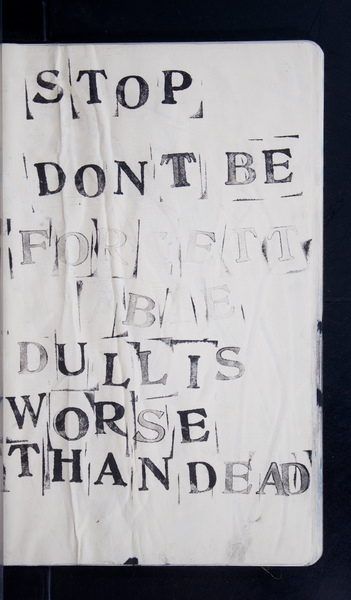 STOP
DONT BE
FORGETT
ABLE
DULL IS
WORSE
THAN DEAD